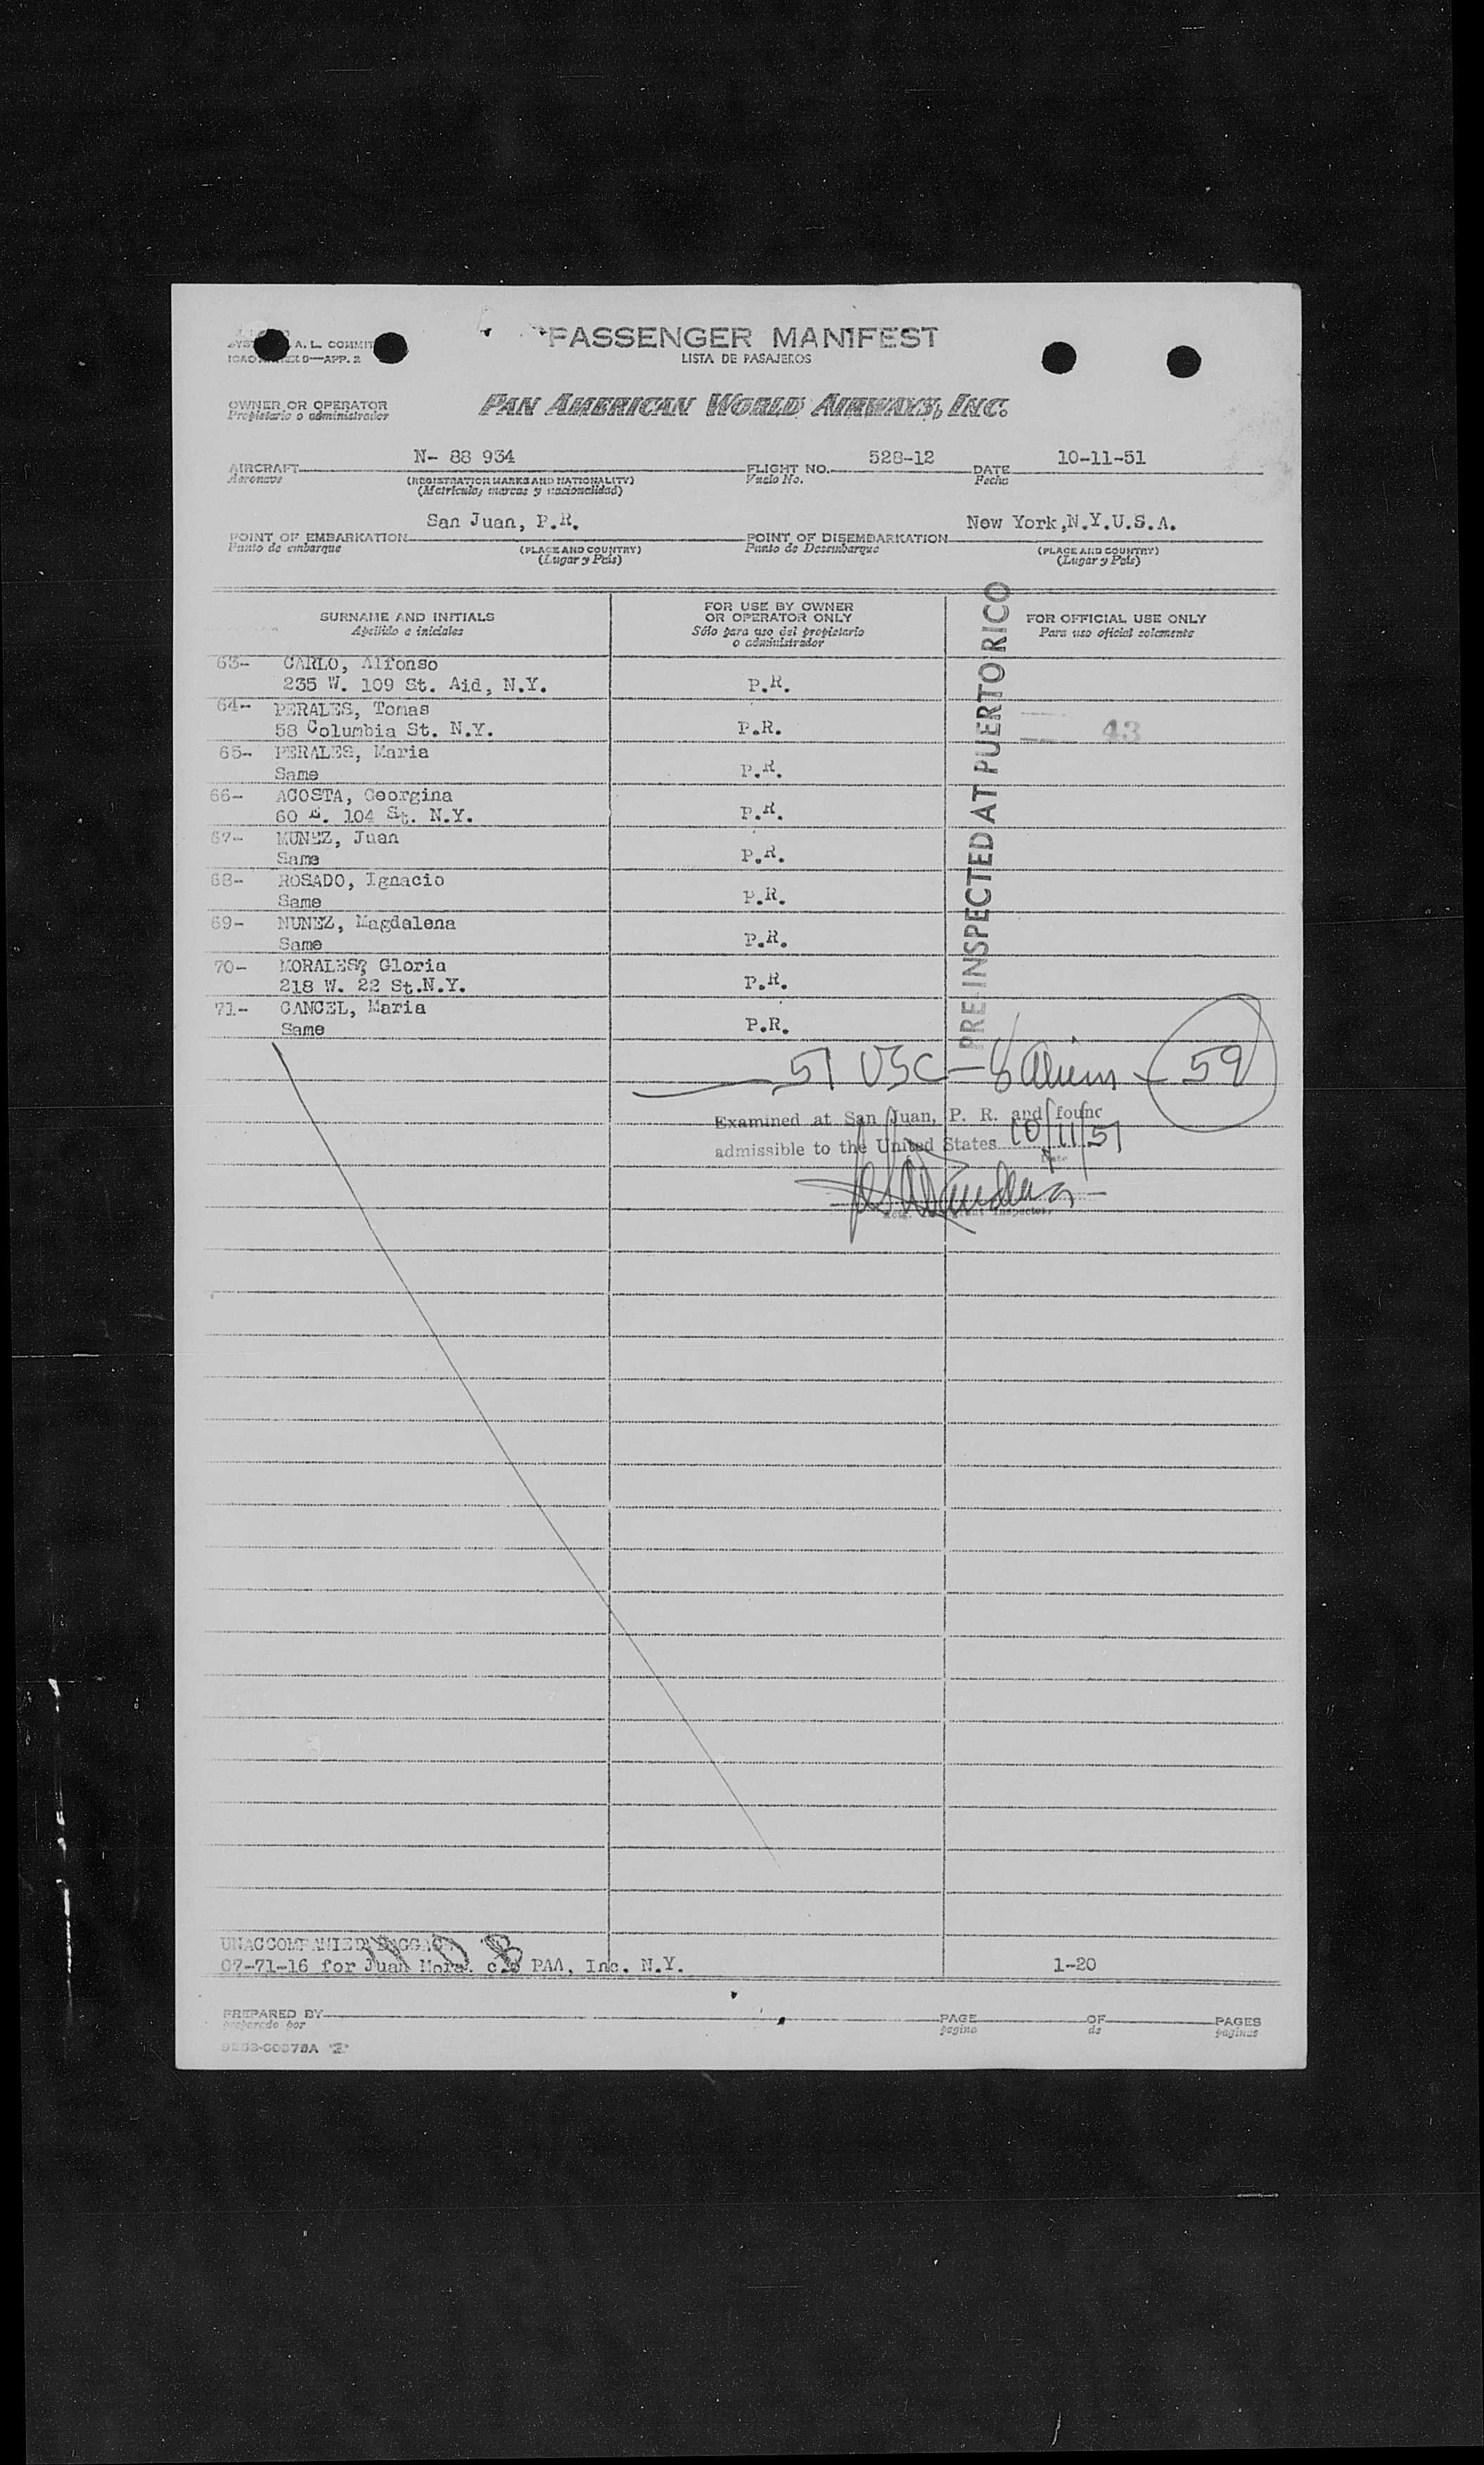 A. L. COMMIT
ICAO ANNEX 9—APP. 2
PASSENGER MANIFEST
LISTA DE PASAJEROS
OWNER OR OPERATOR
Propietario o administrador
PAN AMERICAN WORLD AIRWAYS, INC.
AIRCRAFT N- 88 934 FLIGHT NO. 528-12 DATE 10-11-51
Aeronave (REGISTRATION MARKS AND NATIONALITY) Vuelo No. Fecha
(Matricula, marcas y nacionalidad)
POINT OF EMBARKATION San Juan, P.R. POINT OF DISEMBARKATION New York,N.Y.U.S.A.
Punto de embarque (PLACE AND COUNTRY) Punto de Desembarque (PLACE AND COUNTRY)
(Lugar y País) (Lugar y País)
SURNAME AND INITIALS
Apellido e iniciales
FOR USE BY OWNER
OR OPERATOR ONLY
Sólo para uso del propietario
o administrador
FOR OFFICIAL USE ONLY
Para uso oficial solamente
PRE-INSPECTED AT PUERTO RICO
63- CARLO, Alfonso
235 W. 109 St. Aid, N.Y. P.R.
64- PERALES, Tomas
58 Columbia St. N.Y. P.R. 43
65- PERALES, Maria
Same P.R.
66- ACOSTA, Georgina
60 E. 104 St. N.Y. P.R.
67- MUNEZ, Juan
Same P.R.
68- ROSADO, Ignacio
Same P.R.
69- NUNEZ, Magdalena
Same P.R.
70- MORALES, Gloria
218 W. 22 St.N.Y. P.R.
71- CANCEL, Maria
Same P.R.
51 USC - 8 Aliens - 59
Examined at San Juan, P. R. and found
admissible to the United States 10/11/51
Date
Inspector.
UNACCOMPANIED BAGGAG
07-71-16 for Juan Mora. c/o PAA, Inc. N.Y. 1-20
PREPARED BY PAGE OF PAGES
preparado por pagina de paginas